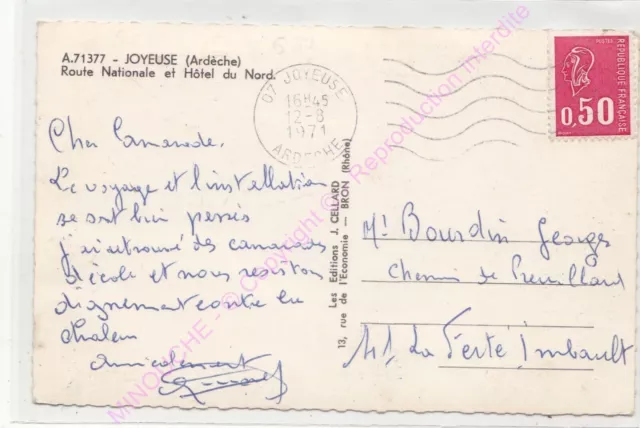 A.71377 - JOYEUSE (Ardèche)
Route Nationale et Hôtel du Nord.
07 JOYEUSE
16H45
12-8
1971
ARDECHE
POSTES
REPUBLIQUE FRANÇAISE
0,50
Cher Camarade.
Le voyage et l'installation
se sont bien passés
j'ai retrouvé des camarades
d'école et nous résistons
dignement contre la
chaleur
amicalement
Les Editions J. CELLARD
13, rue de l'Economie — BRON (Rhône)
Mr Bourdin Georges
Chemin de
41 La Ferté Imbault
MINOUCHE - © Copyright © - Reproduction interdite